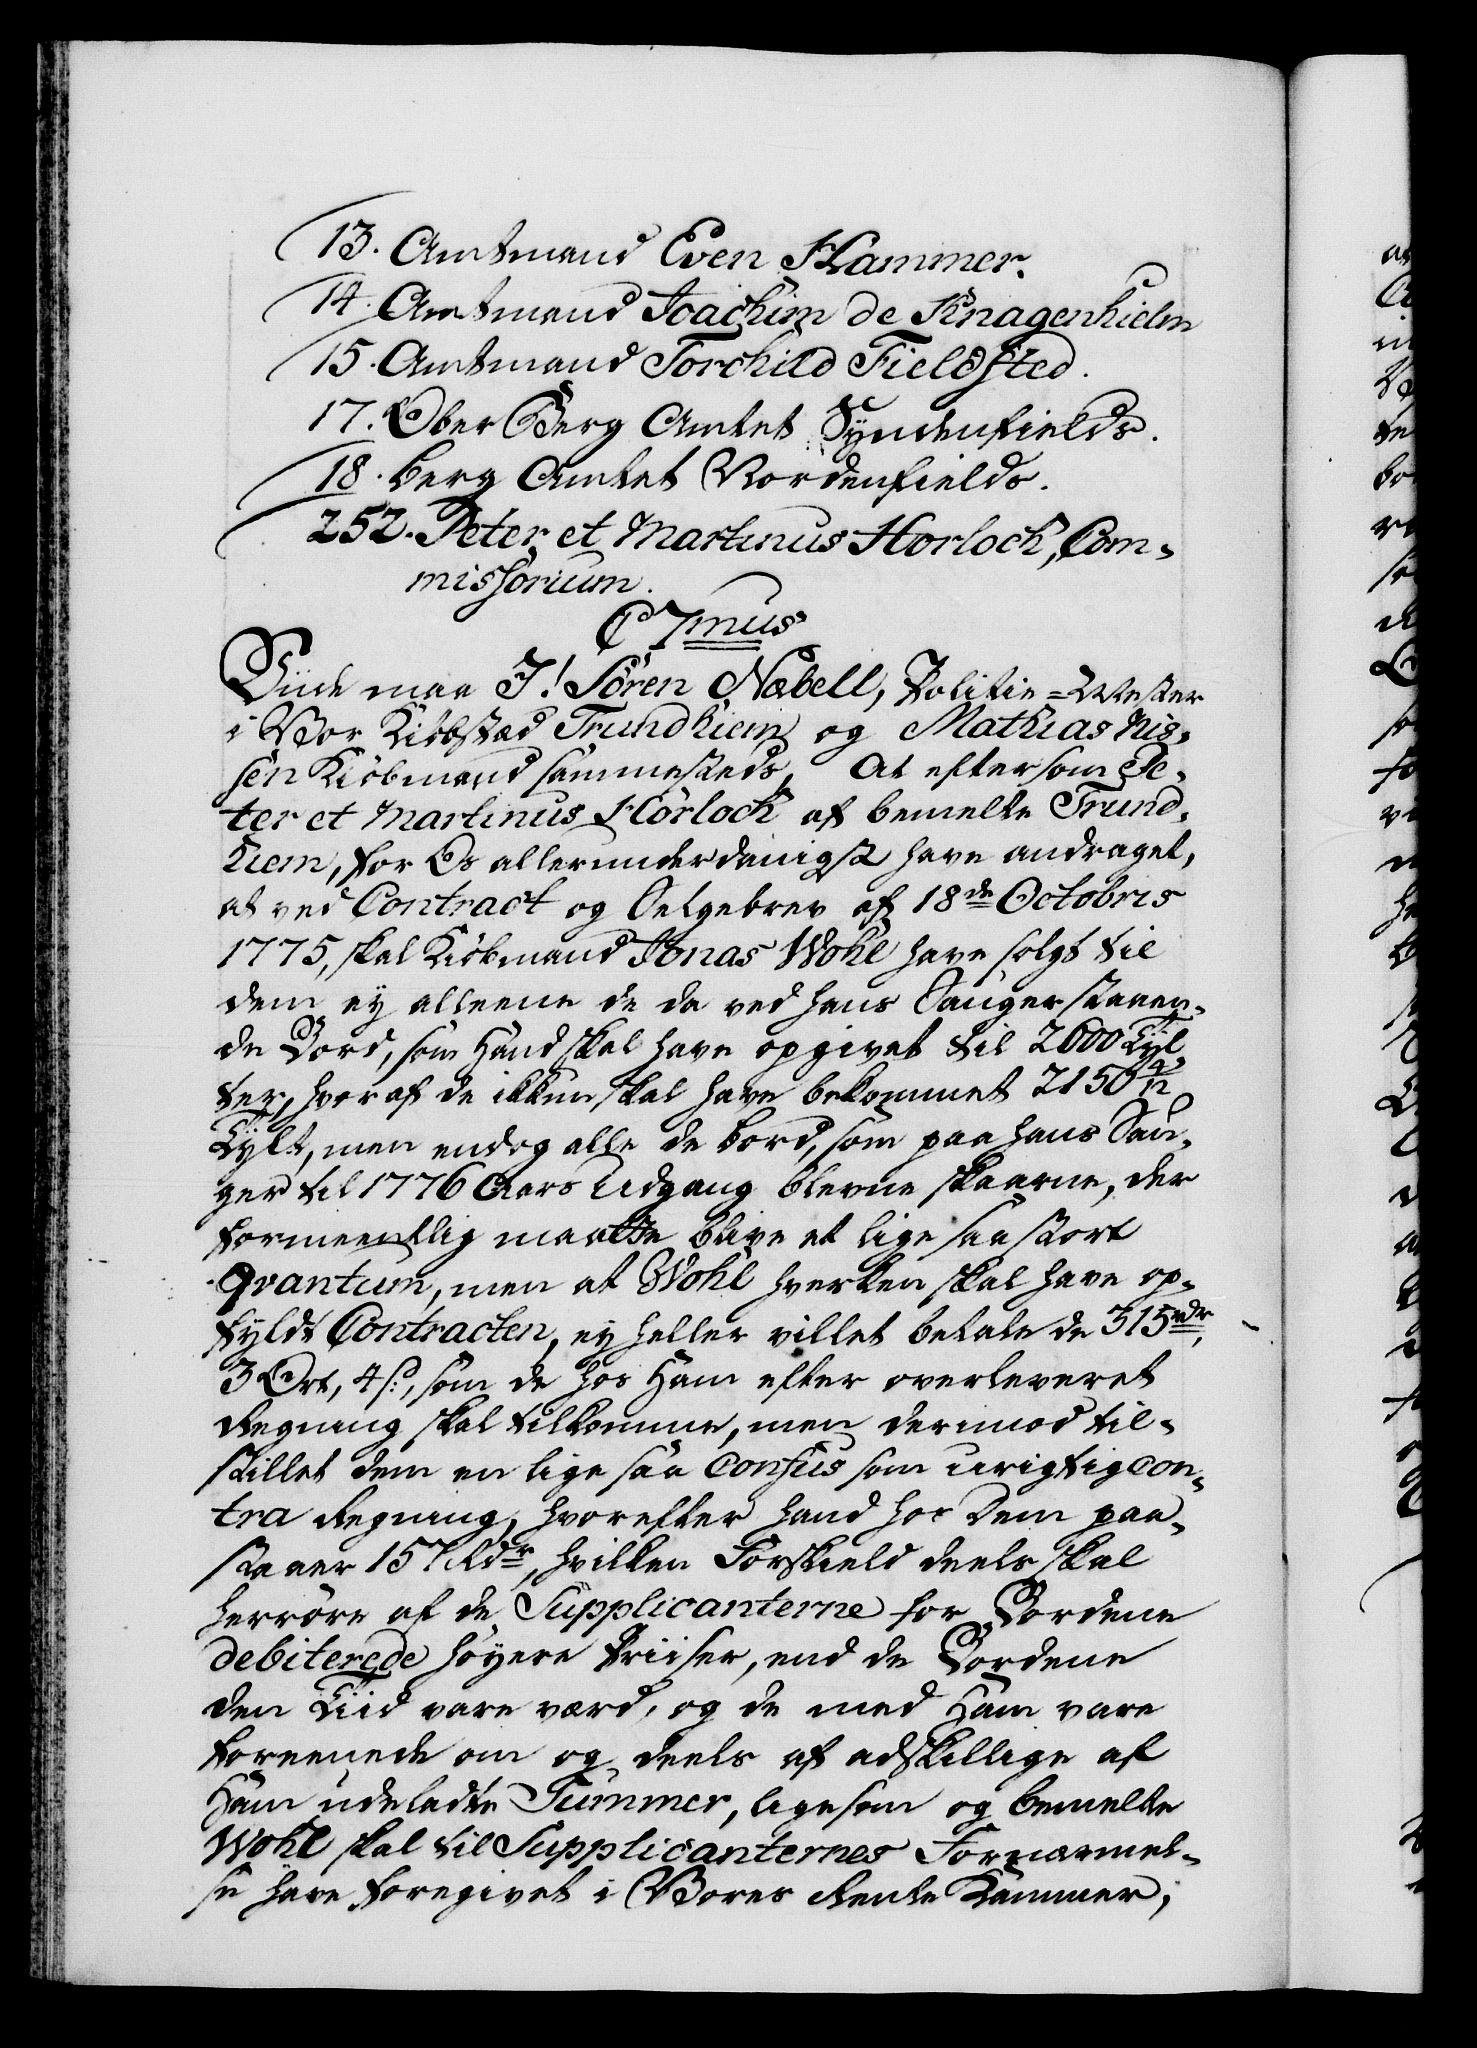 13. Amtmand Even Hammer.
14. Amtmand Joachim de Knagenhielm
15. Amtmand Torchild Fieldsted.
17. Ober Berg Amtet Syndenfields.
18. Berg Amtet Nordenfields.
252. Peter et Martinus Horloch, Com-
missorium.
C 7mus
Viide maa I! Sören Næbell, Politie-Mester
i Vor Kiöbstæd Trundhiem og Mathias Nis-
sen Kiöbmand sammesteds, At eftersom Pe-
ter et Martinus Horloch af bemelte Trund-
hiem, for Os allerunderdanigst have andraget,
at ved Contract og Selgebrev af 18de Octobris
1775, skal Kiöbmand Jonas Wohl have solgt til
dem ey alleene de da ved hans Sauger staaen-
de Bord, som Hand skal have opgivet til 2600 Tyl-
ter, hvoraf de ikkun skal have bekommet 2150
Tylt, men endog alle de Bord, som paa hans Sau-
ger til 1776 Aars Udgang bleve skaarne, der
formeentlig maatte blive et lige saa stort
Qvantum, men at Wohl hverken skal have op-
fyldt Contracten, ey heller villet betale de 315 rdr,
3 Ort, 4 s:, som de hos Ham efter overleveret
Regning skal tilkomme, men derimod til-
stillet dem en lige saa Confus som urigtig Con-
tra Regning, hvorefter Hand hos dem paa-
staaer 157 Rdr, hvilken Forskield deels skal
herröre af de Supplicanterne for Bordene
debiterede höyere Priiser, end de Bordene
den Tiid vare værd, og de med Ham vare
foreenede om og deels af adskillige af
Ham udeladte Summer, ligesom og bemelte
Wohl skal til Supplicanternes Fornærmel-
se have foregivet i Vores Rente Kammer,